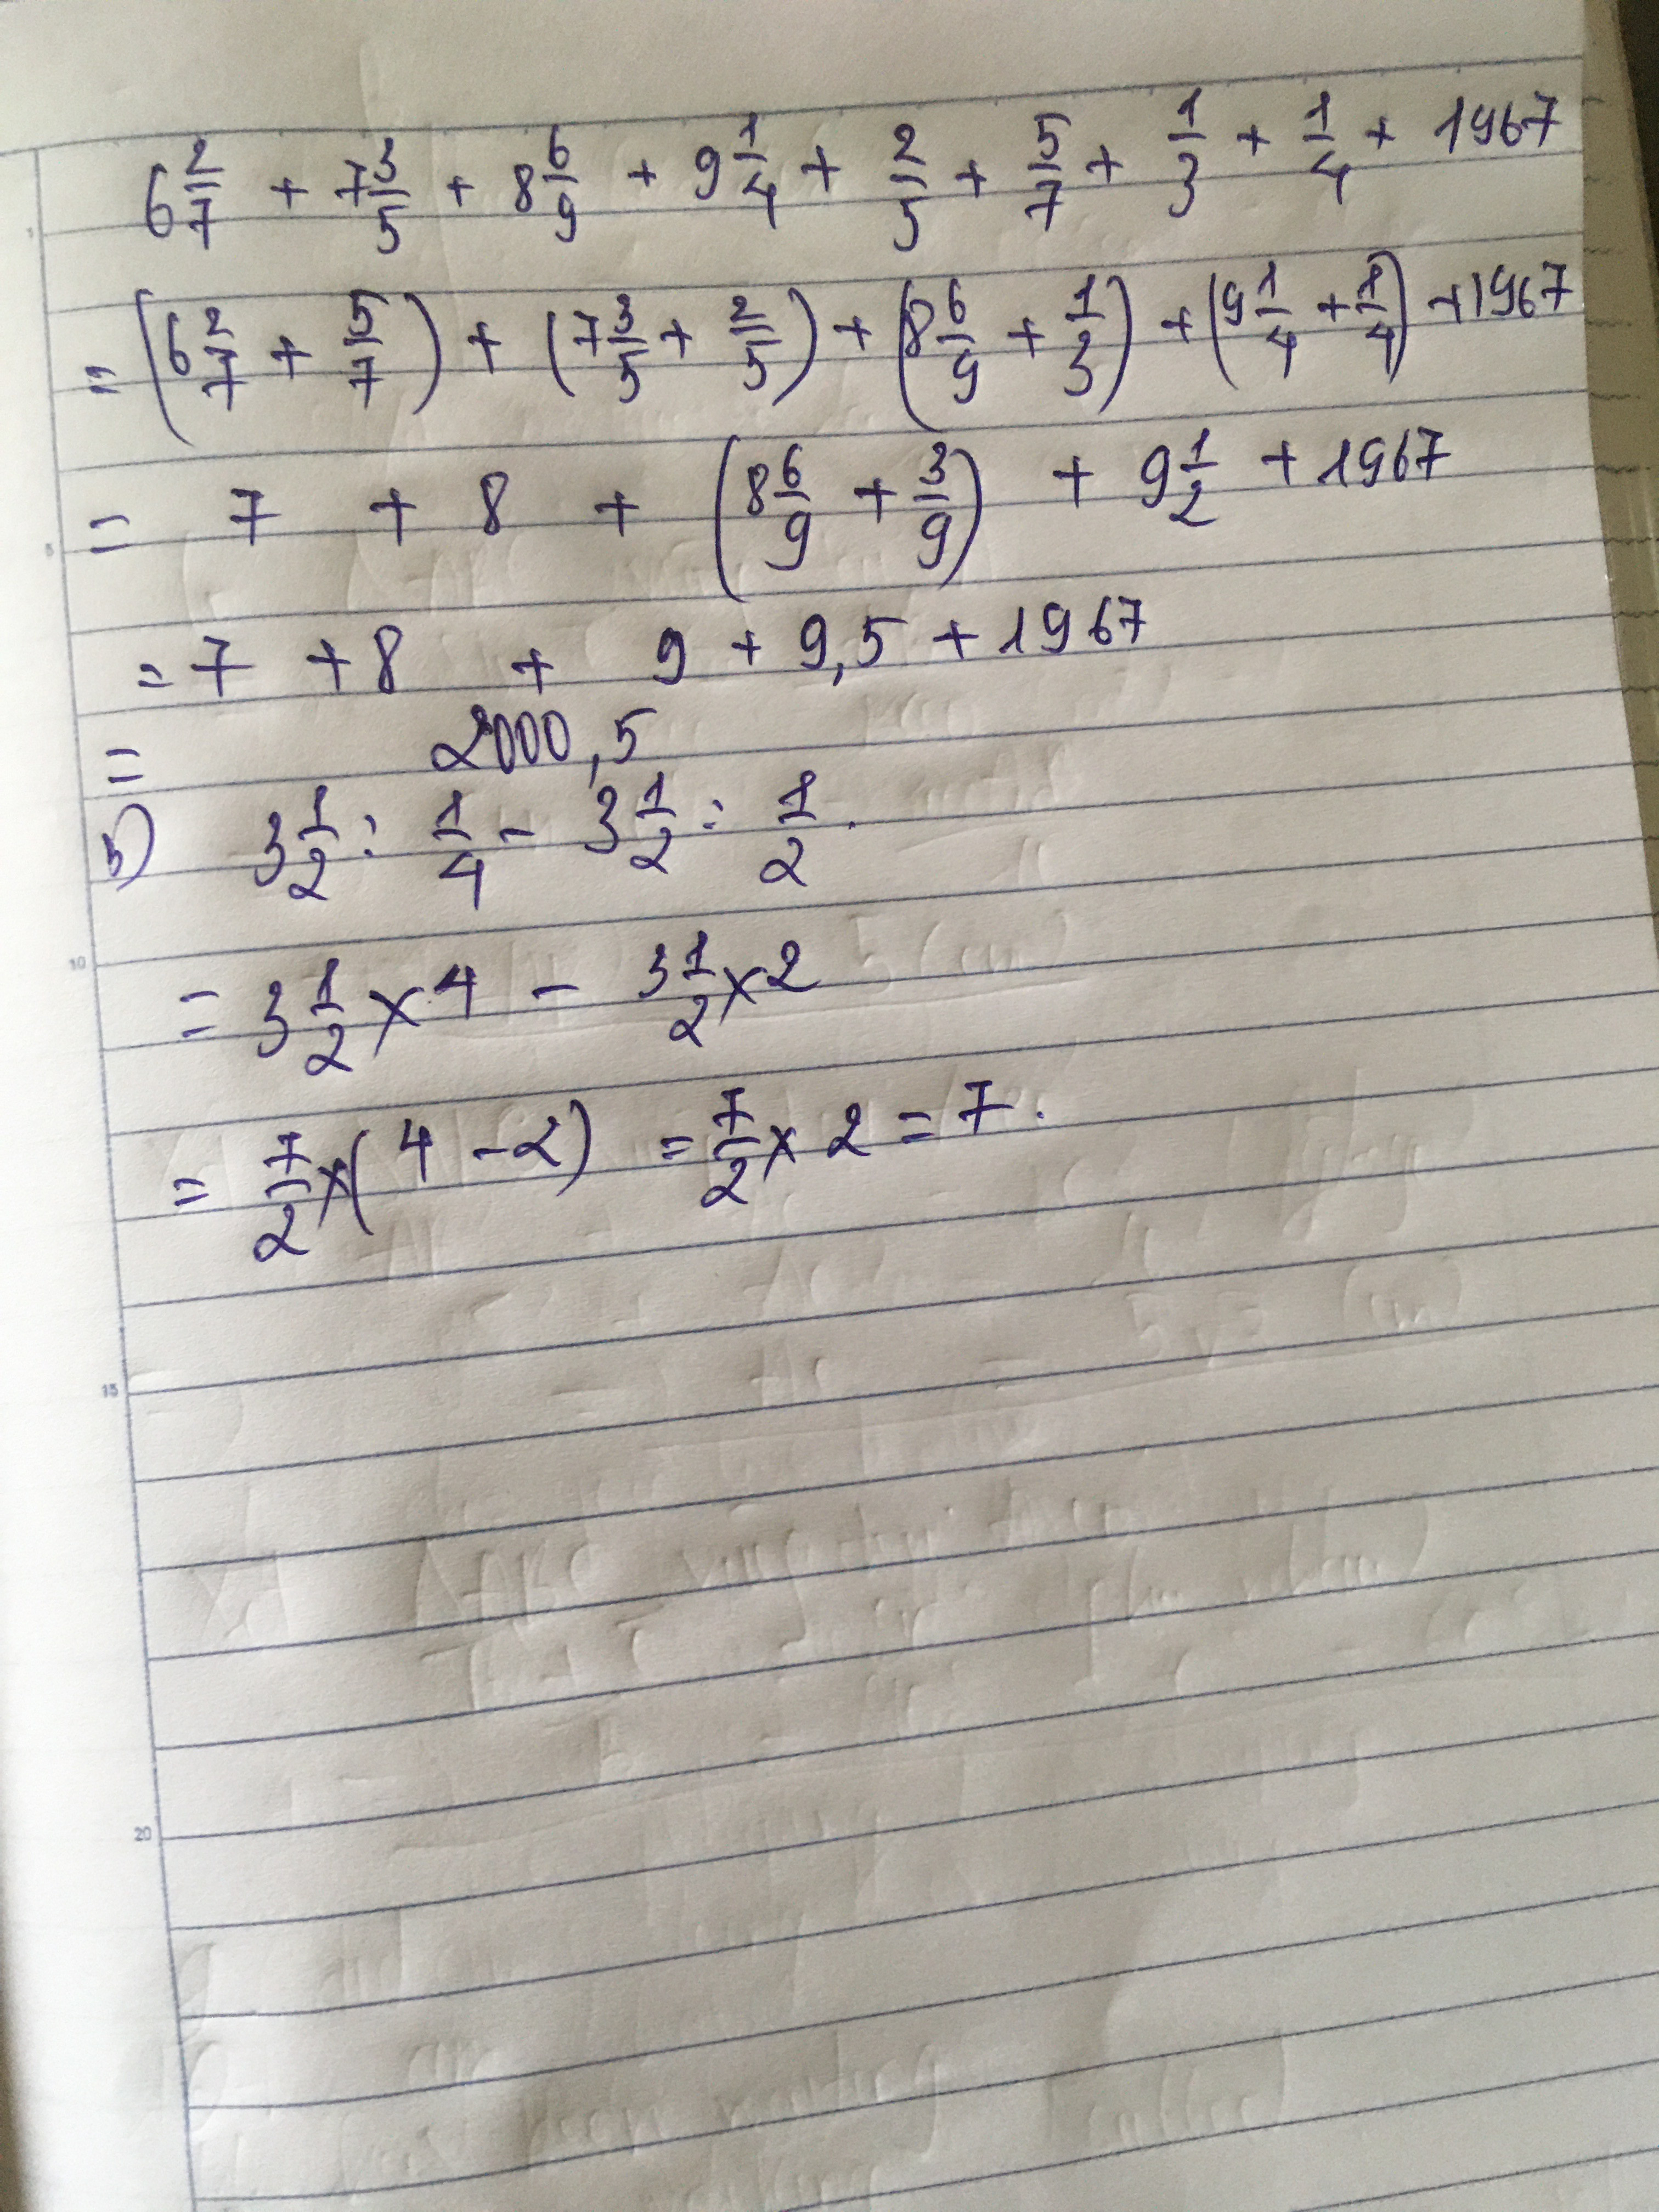 6 2/7 + 7 3/5 + 8 6/9 + 9 1/4 + 2/5 + 5/7 + 1/3 + 1/4 + 1967
= (6 2/7 + 5/7) + (7 3/5 + 2/5) + (8 6/9 + 1/3) + (9 1/4 + 1/4) + 1967
= 7 + 8 + (8 6/9 + 3/9) + 9 1/2 + 1967
= 7 + 8 + 9 + 9,5 + 1967
= 2000,5
b) 3 1/2 : 1/4 - 3 1/2 : 1/2 .
= 3 1/2 × 4 - 3 1/2 × 2
= 7/2 × (4 - 2) = 7/2 × 2 = 7 .
1
5
10
15
20